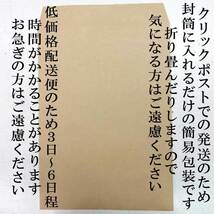 クリックポストでの発送のため
封筒に入れるだけの簡易包装です
折り畳んだりしますので
気になる方はご遠慮ください
低価格配送便のため3日~6日程
時間がかかることがあります
お急ぎの方はご遠慮ください